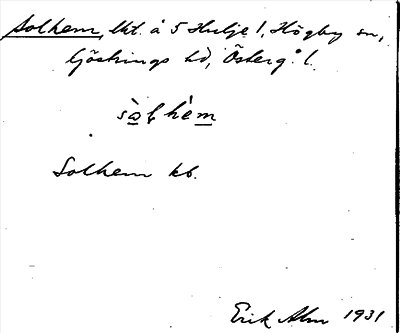 Solhem, lht. å 5 Hulje 1, Högby sn,
Göstrings hd, Österg. l.
sòlhèm
Solhem kb.
Erik Alm 1931